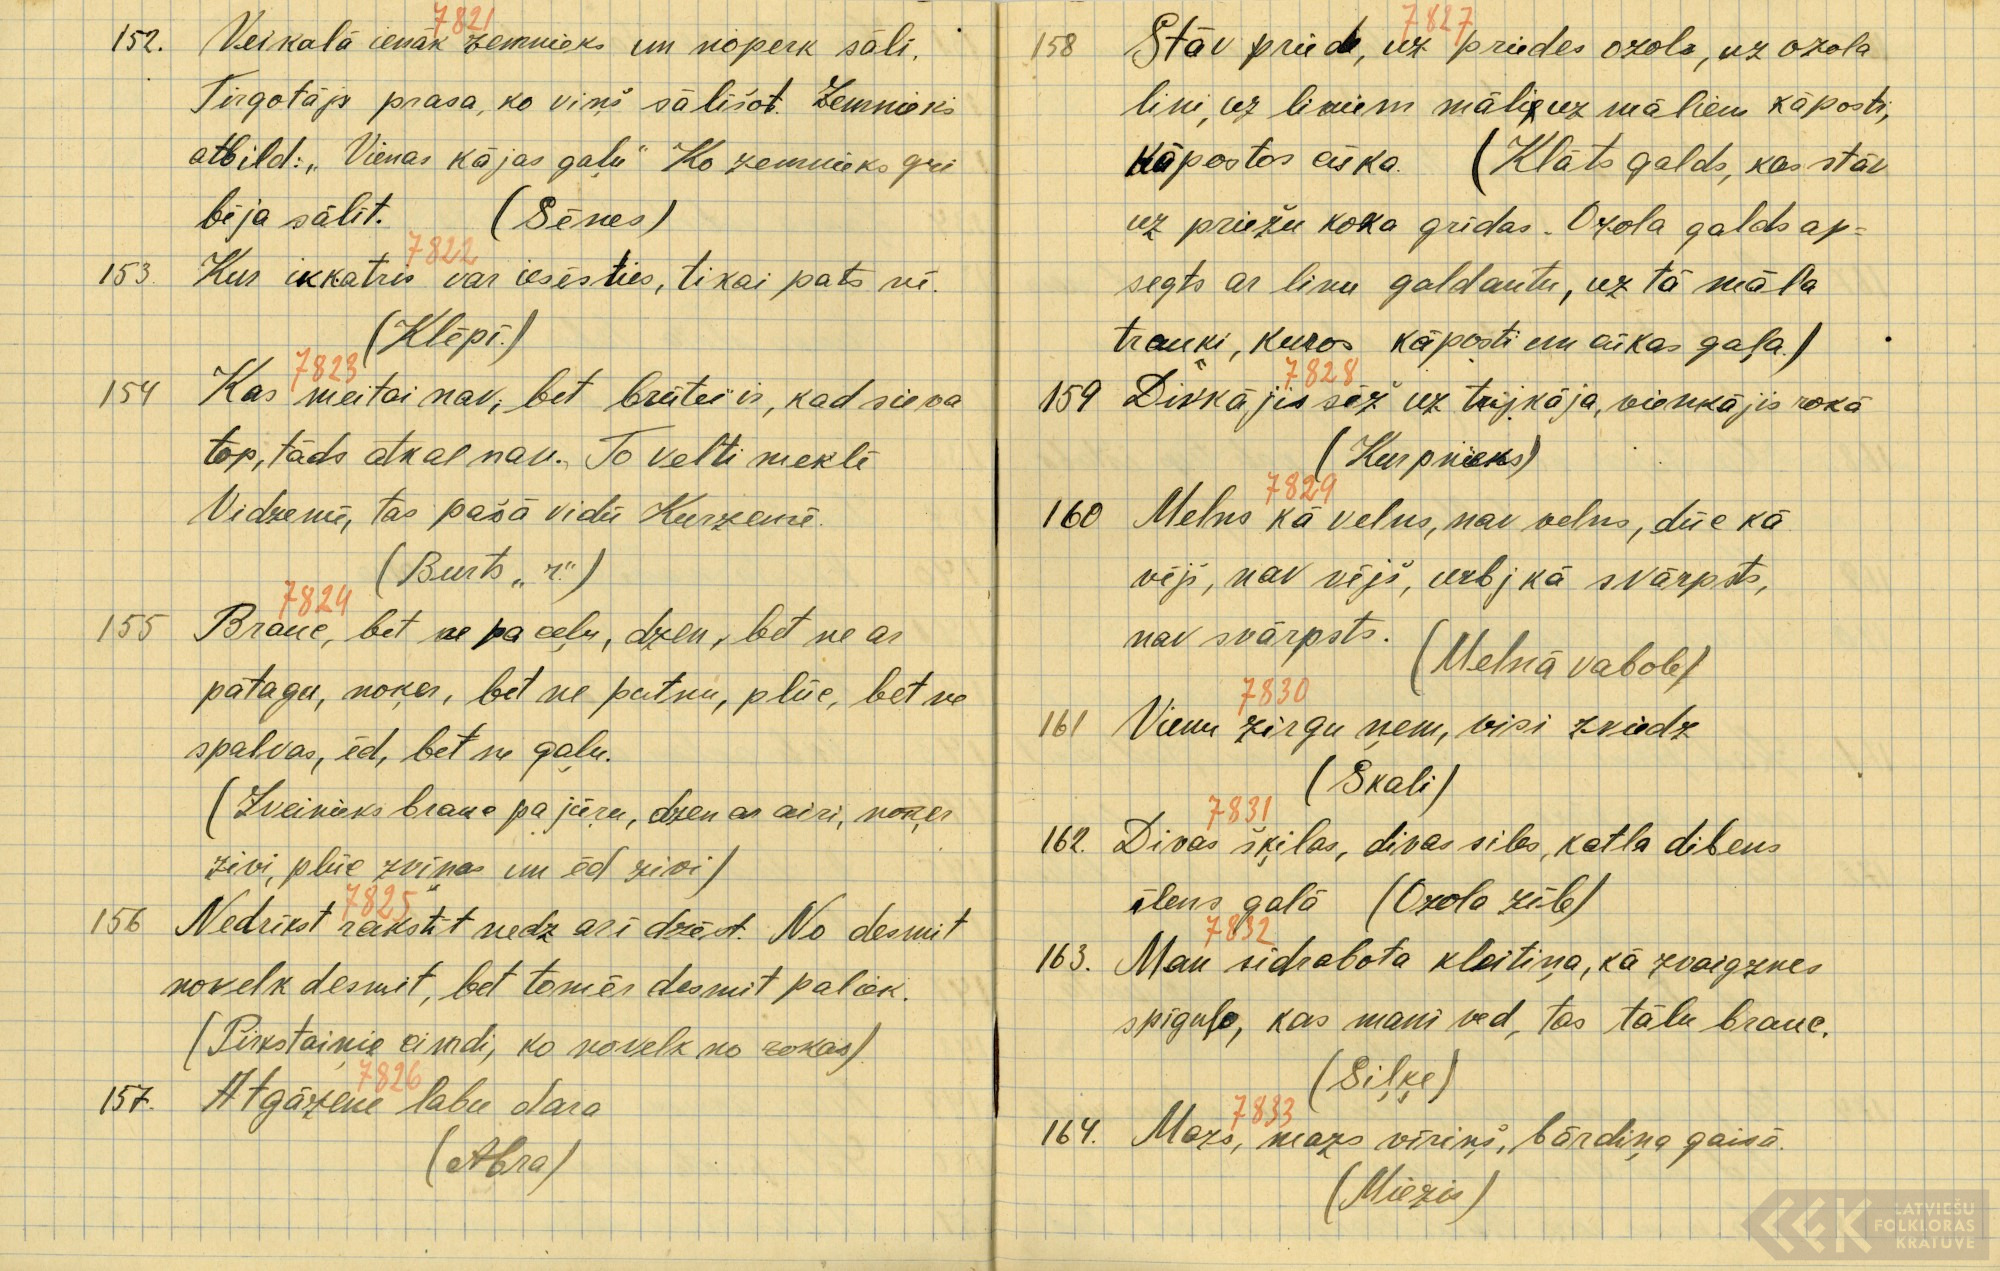 7821
152. Veikalā ienāk zemnieks un nopērk sāli.
Tirgotājs prasa, ko viņš sālīšot. Zemnieks
atbild: „Vienas kājas gaļu" Ko zemnieks gri
bēja sālīt. (Sēnes)
7822
153. Kur ikkatris var iesēsties, tikai pats nē.
(Klēpī.)
7823
154 Kas meitai nav, bet brūtei ir, kad sieva
top, tāds atkal nav. To velti meklē
Vidzemē, tas pašā vidū Kurzemē.
(Burts „r.")
7824
155 Brauc, bet ne pa ceļu, dzen, bet ne ar
pātagu, noķer, bet ne putnu, plūc, bet ne
spalvas, ēd, bet ne gaļu.
(Zveinieks brauc pa jūru, dzen ar airi, noķer
zivi, plūc zvīņas un ēd zivi)
7825
156 Nedrīkst rakstīt nedz arī dzēst. No desmit
novelk desmit, bet tomēr desmit paliek.
(Pirkstaiņie cimdi, ko novelk no rokas)
7826
157. Atgāzene labu dara
(Abra)
7827
158 Stāv priede, uz priedes ozols, uz ozola
lini, uz liniem māli, uz māliem kāposti,
kāpostos cūka. (Klāts galds, kas stāv
uz priežu koka grīdas. Ozola galds ap=
segts ar linu galdautu, uz tā māla
trauki, kuros kāposti un cūkas gaļa.)
7828
159 Divkājis sēž uz trijkāja, vienkājis rokā
(Kurpnieks)
7829
160 Melns kā velns, nav velns, dūc kā
vējš, nav vējš, urbj kā svārpsts,
nav svārpsts. (Melnā vabole)
7830
161 Vienu zirgu ņem, visi zviedz
(Skali)
7831
162. Divas šķilas, divas silas, katla dibens
īlens galā (Ozola zīle)
7832
163. Man sidrabota kleitiņa, kā zvaigznes
spīguļo, kas mani ved, tas tālu brauc.
(Siļķe)
7833
164. Mazs, mazs vīriņš, bārdiņa gaisā.
(Miezis)
LATVIEŠU
FOLKLORAS
KRĀTUVE